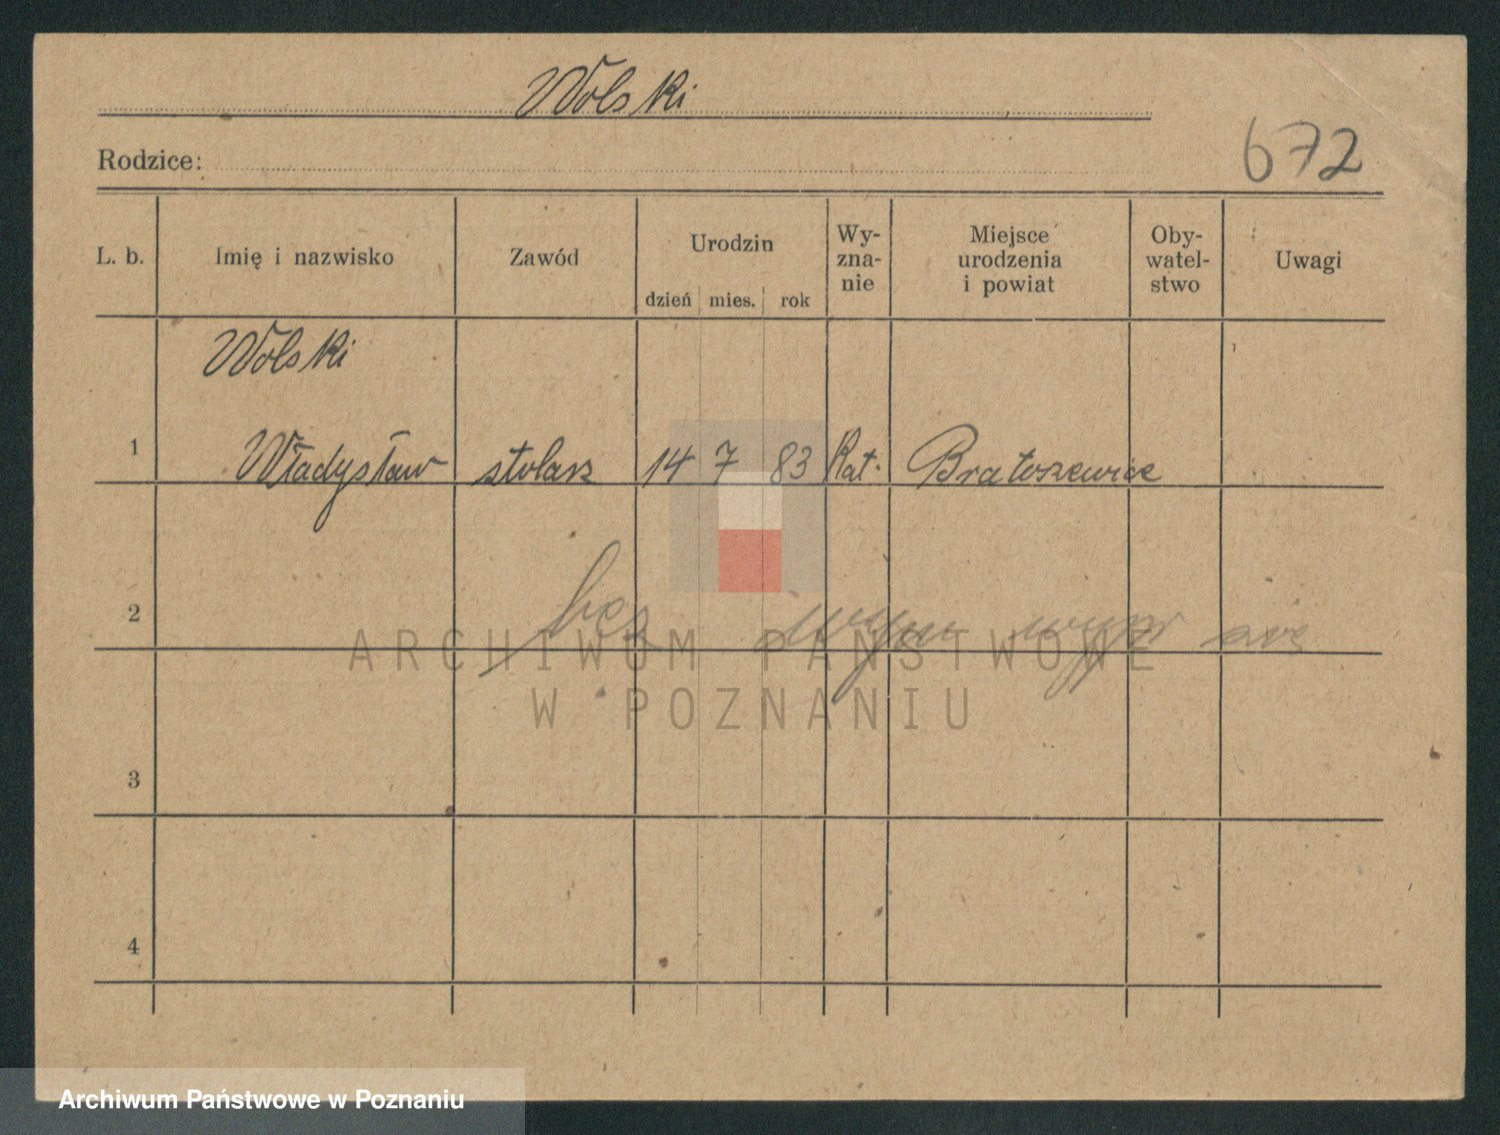 Wolski
Rodzice:
672
L. b. Imię i nazwisko Zawód Urodzin dzień mies. rok Wy-zna-nie Miejsce urodzenia i powiat Oby-watel-stwo Uwagi
Wolski
1 Władysław stolarz 14 7 83 Kat. Bratoszewice
2 bez
3
4
ARCHIWUM PAŃSTWOWE
W POZNANIU
Archiwum Państwowe w Poznaniu